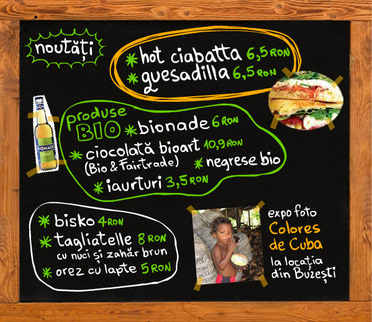 noutăți
* hot ciabatta 6,5 RON
* quesadilla 6,5 RON
produse
BIO
* bionade 6 RON
* ciocolată bioart 10,9 RON
(Bio & Fairtrade)
* negrese bio
* iaurturi 3,5 RON
* bisko 4 RON
* tagliatelle 8 RON
cu nuci și zahăr brun
* orez cu lapte 5 RON
expo foto
Colores
de Cuba
la locația
din Buzești